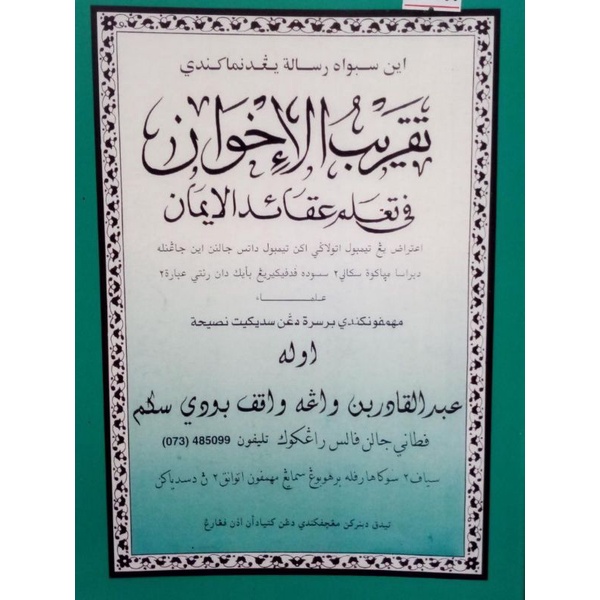 اين سبواه رسالة يڠدنماكندي
تقريب الإخوان
في تعلم عقائد الايمان
اعتراض يڠ تيمبول اتولاكي اكن تيمبول داتس جالنن اين جاڠنله
ديراسا مڽاكوة سكالي٢ سسوده فدفيكيريڠ بأيك دان رنتي عبارة٢
علماء
مهمفونكندي برسرة دڠن سديكيت نصيحة
اوله
عبدالقادربن واڠه واقف بودي سكم
فطاني جالن فالس راڠكوك تليفون 485099 (073)
سياف٢ سوكاهارفله برهوبوڠ سمايڠ مهمفون اتوانق٢ ڽ دسدياكن
تيدق دبنركن مڠچفكندي دڠن كتيادأن اذن فڠارڠ